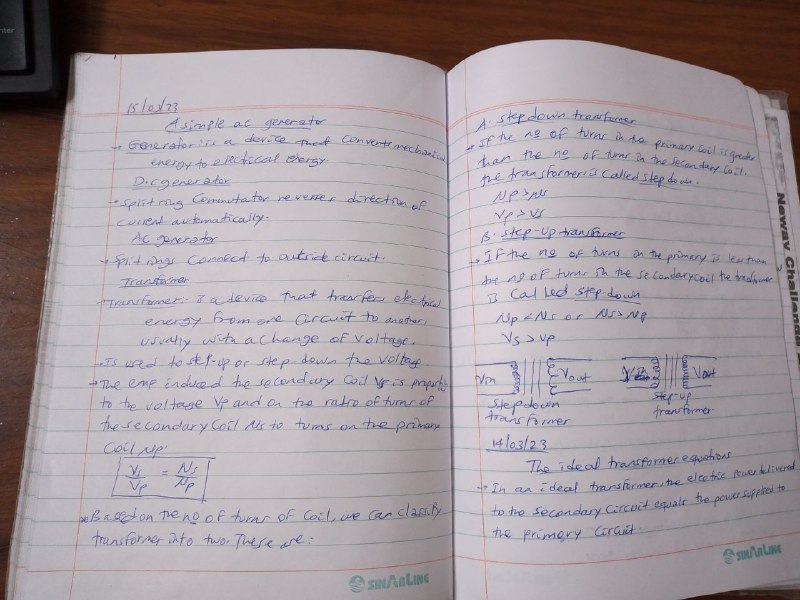 15/03/23
A simple ac generator
→ Generator is a device that converts mechanical
energy to electrical energy.
D.c generator
→ Split ring commutator reverses direction of
current automatically.
AC generator
→ Split rings connect to outside circuit.
Transformer
→ Transformer: Is a device that transfers electrical
energy from one circuit to another
usually with a change of voltage.
→ Is used to step-up or step-down the voltage
→ The emf induced the secondary coil Vs is proportional
to the voltage Vp and on the ratio of turns of
the secondary coil Ns to turns on the primary
coil Np.
Vs/Vp = Ns/Np
→ Based on the no of turns of coil, we can classify
transformer into two. These are:
SINARLINE
A. Step down transformer
→ If the no of turns in the primary coil is greater
than the no of turns in the secondary coil.
the transformer is called step down.
Np > Ns
Vp > Vs
B. Step-Up transformer
→ If the no of turns in the primary is less than
the no of turns in the secondary coil the transformer
is called step down
Np < Ns or Ns > Np
Vs > Vp
Vin Vout Vin Vout
Step down
transformer
Step-up
transformer
14/03/23
The ideal transformer equations
→ In an ideal transformer, the electric power delivered
to the secondary circuit equals the power supplied to
the primary circuit.
SINARLINE